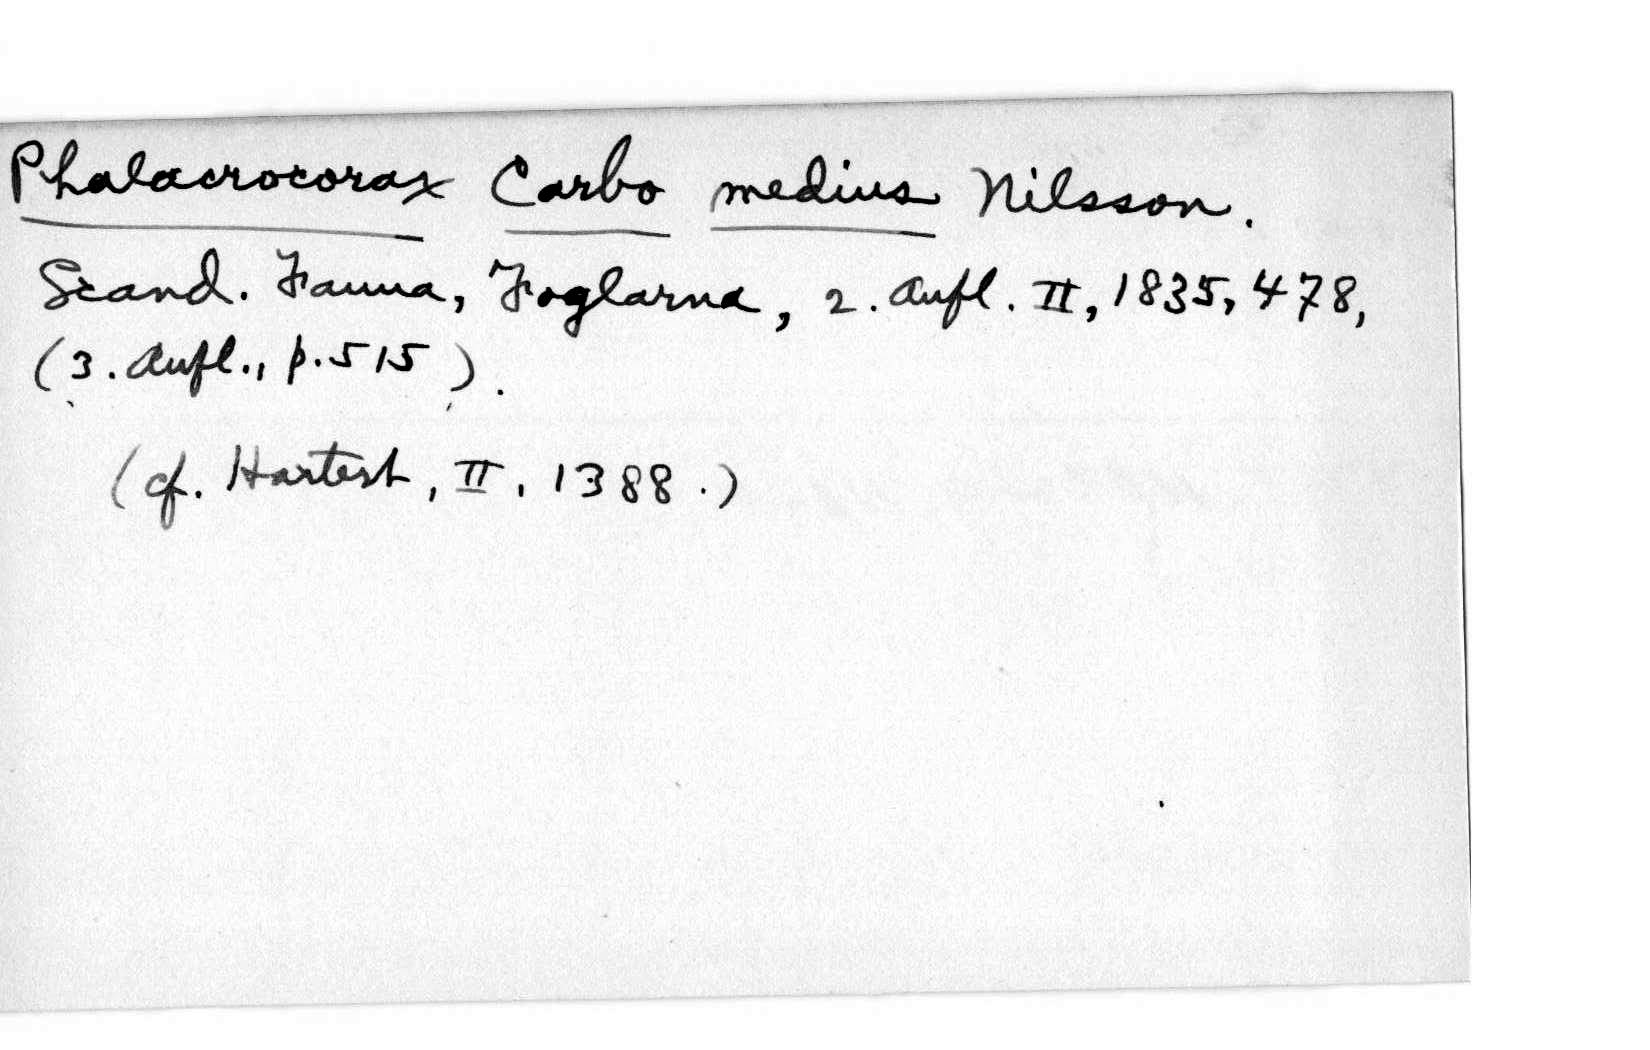 Phalacrocorax Carbo medius Nilsson.
Scand. Fauna, Foglarna, 2. Aufl. II, 1835, 478,
(3. Aufl., p. 515).
(cf. Hartert, II, 1388.)